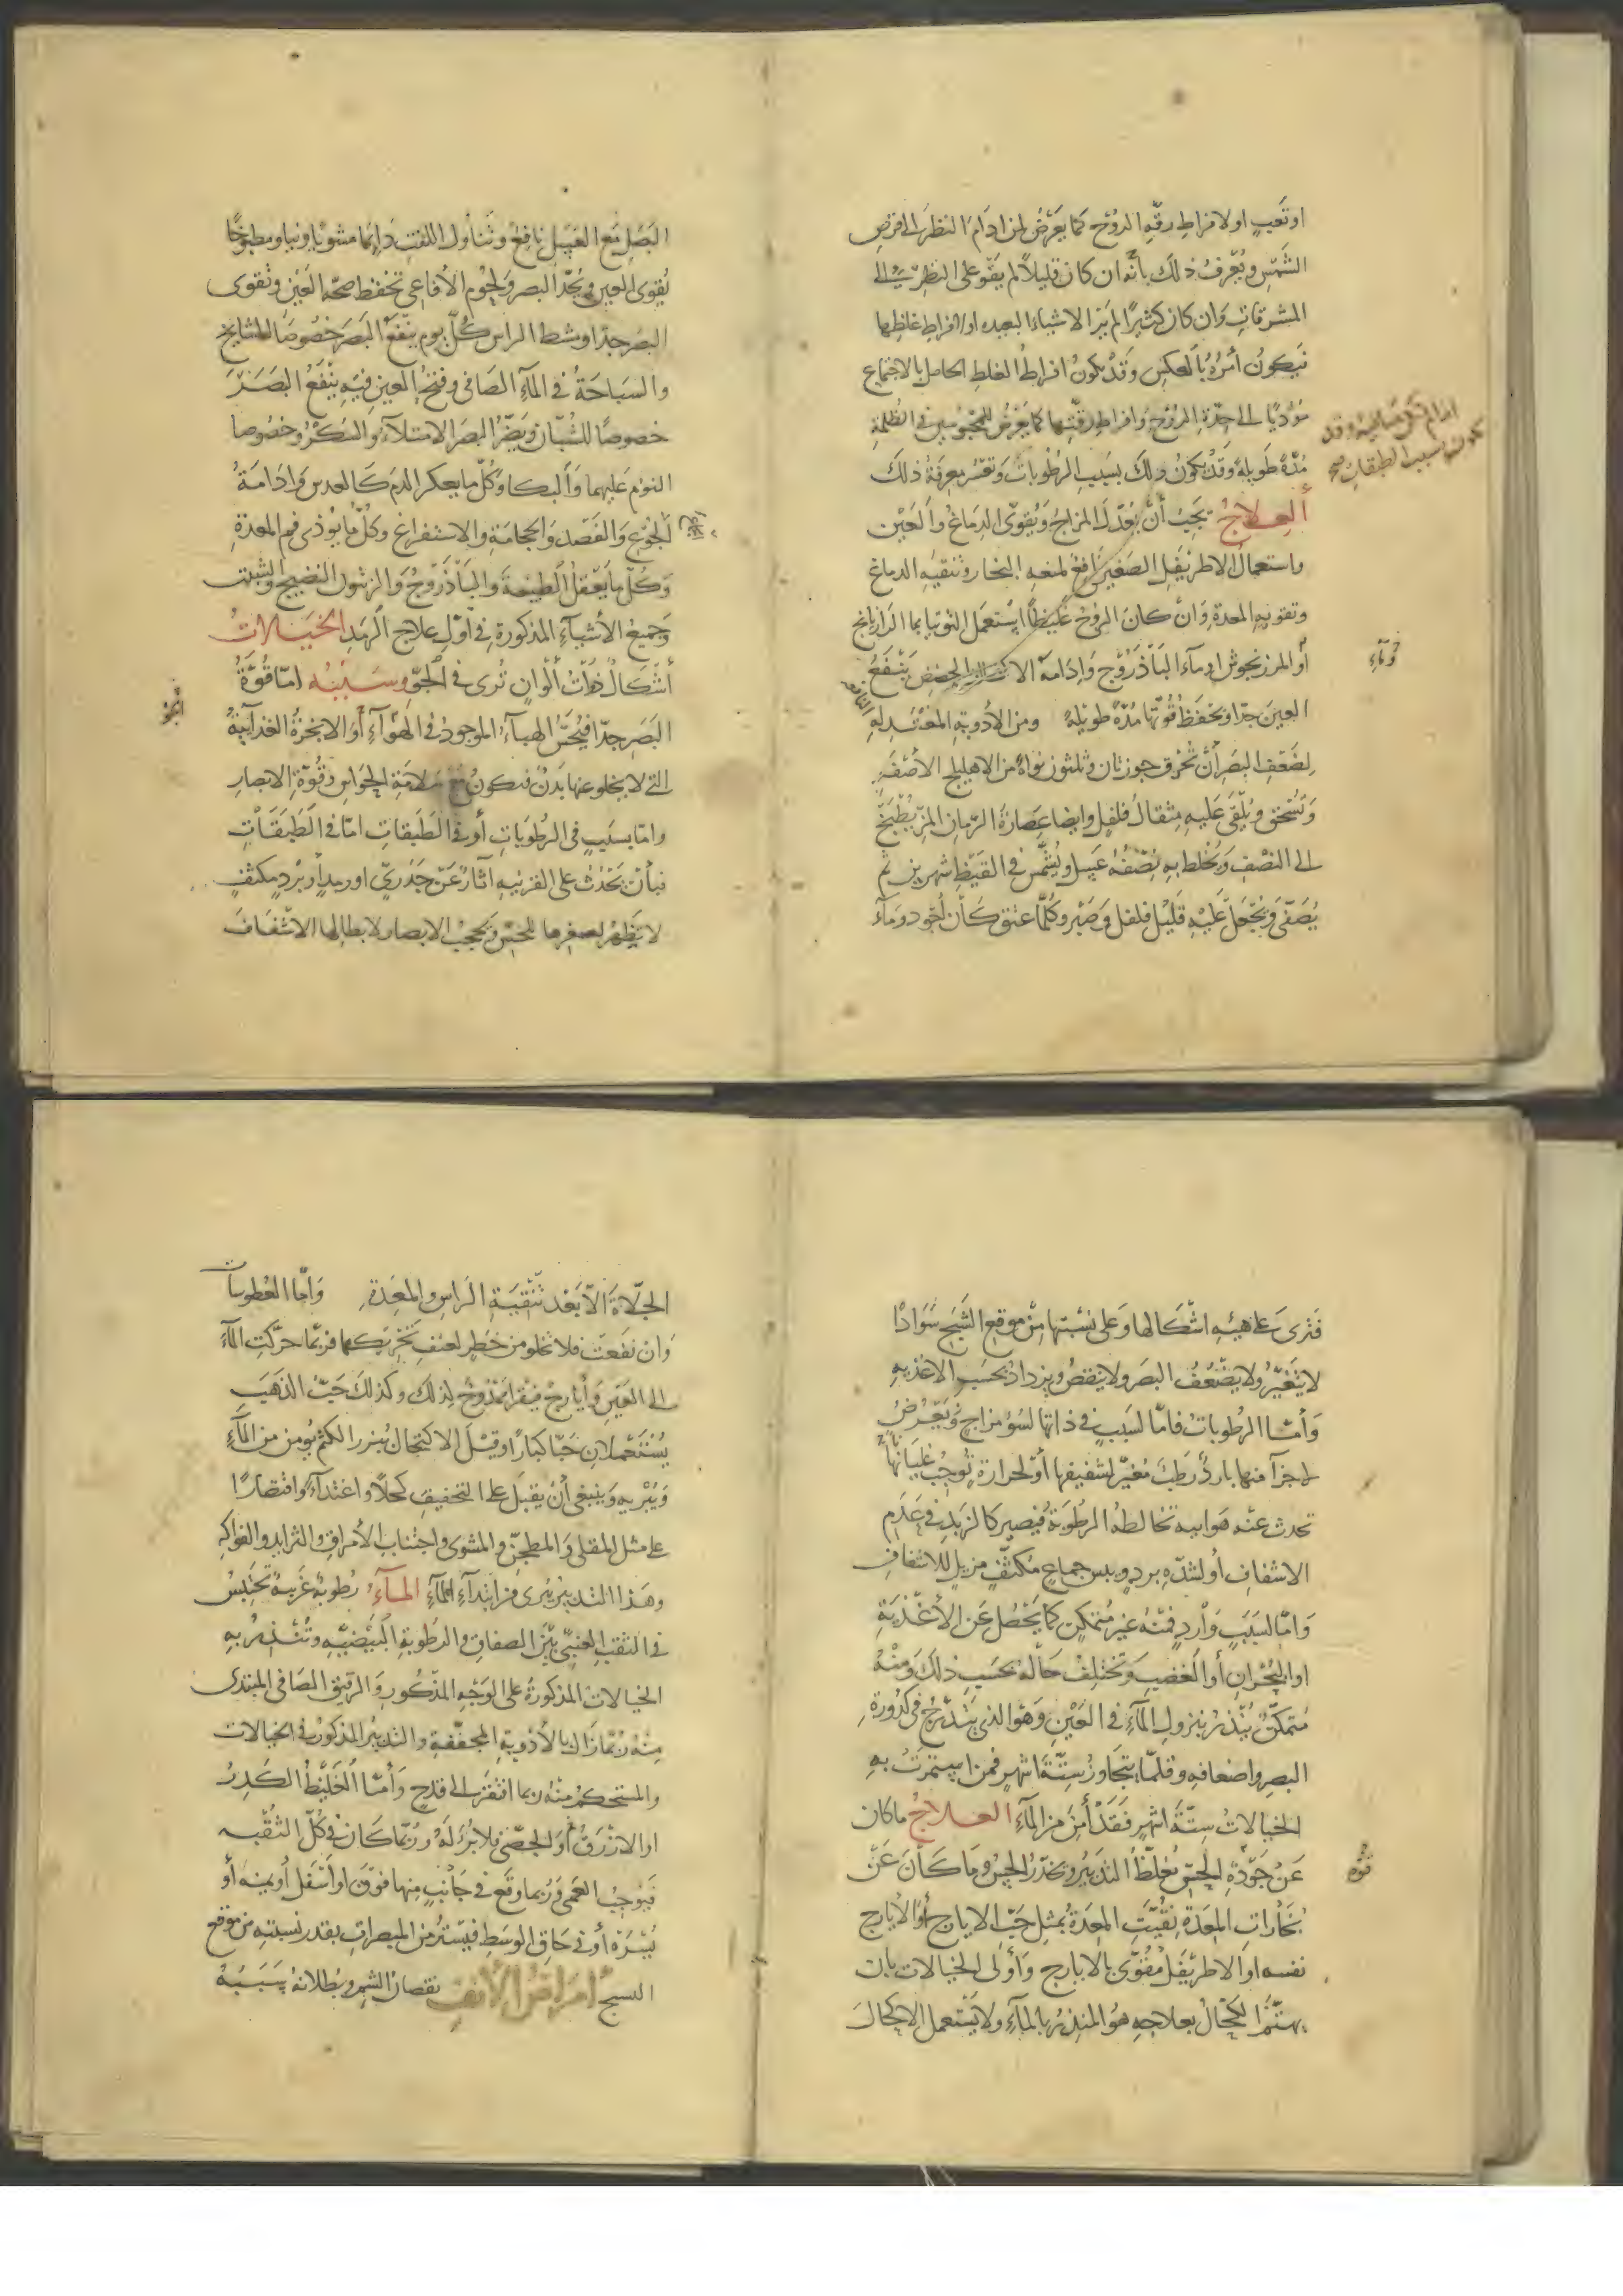 او تعب او لافراط رقة الروح كما يعرض لمن ادام النظر الى قرص
الشمس ويعرف ذلك بأنه ان كان قليلا لم يقو على النظر الى
المشرقات وان كان كثيرا لم ير الاشياء البعيدة او لافراط غلظها
فيكون أمره بالعكس وقد يكون افراط الغلظ الحاصل بالاجتماع
مؤديا الى حدة الروح وافراط رقتها كما يعرض للمحبوسين في الظلمة
مدة طويلة وقد يكون ذلك بسبب الرطوبات وتعسر معرفة ذلك
يكون بسبب الطبقات صح
العلاج يجب أن يعدل المزاج ويقوى الدماغ والعين
واستعمال الاطريفل الصغير نافع لمنعه البخار وتنقية الدماغ
وتقوية المعدة وان كان الروح غليظا استعمل التوتيا بما الرازيانج
أو المرزنجوش او مآء الباذروج وادامة الاكتحال بالحضض ينفع
العين جدا ويحفظ قوتها مدة طويلة ومن الأدوية المعتدلة
لضعف البصر أن تحرق جوزتان وثلثون نواة من الاهليلج الأصفر
وتسحق ويلقى عليه مثقال فلفل وايضا عصارة الرمان المز يطبخ
الى النصف ويخلط به نصفه عسل ويشمس في القيظ شهرين ثم
يصفى ويجعل عليه قليل فلفل وصبر وكلما عتق كان أجود ومآء
البصل مع العسل نافع وتناول اللفت دايما مشويا ونيا ومطبوخا
يقوى العين ويحد البصر ولحوم الأفاعي تحفظ صحة العين وتقوى
البصر جدا ومشط الراس كل يوم ينفع البصر خصوصا للمشايخ
والسباحة في المآء الصافى وفتح العين فيه ينفع البصر
خصوصا للشبان ويضر البصر الامتلآء والسكر وخصوصا
النوم عليهما والبكا وكل ما يعكر الدم كالعدس وادامة
الجوع والفصد والحجامة والاستفراغ وكل ما يوذى فم المعدة
وكل ما يعقل الطبيعة والباذروج والزيتون النضيج والشبت
وجميع الأشيآء المذكورة في أول علاج الرمد الخيالات
أشكال ذوات ألوان ترى في الجو وسببه اما قوة
البصر جدا فيحس الهبآء الموجود في الهوآء أو الابخرة الغذائية
التى لا يخلو عنها بدن فيكون مع سلامة الحواس وقوة الابصار
واما بسبب في الرطوبات أو في الطبقات اما في الطبقات
فبأن يحدث على القرنية آثار عن جدرى او رمد أو برد مكثف
لا يظهر لصغرها للحس وتحجب الابصار لابطالها الاشفاف
فترى على هيئة اشكالها وعلى نسبتها من موقع الشبح سوادا
لا يتغير ولا يضعف البصر ولا ينقص ويزداد بحسب الاغذية
وأما الرطوبات فاما لسبب في ذاتها لسوء مزاج ويعرض
لاجزآ منها بارد رطب مغير لشفيفها أو لحرارة توجب غليانها
تحدث عنه هوايية تخالط الرطوبة فيصير كالزبد في عدم
الاشفاف أو لشدة برد ويبس جماع مكثف مزيل للاشفاف
واما لسبب وارد فمنه غير متمكن كما يحصل عن الأغذية
او البحران أو الغضب وتختلف حاله بحسب ذلك ومنه
متمكن ينذر بنزول المآء في العين وهو الذى يتدرج في كدورة
البصر واضعافه وقلما يتجاوز ستة أشهر فمن استمرت به
الخيالات ستة أشهر فقد أمن من المآء العلاج ما كان
عن جودة الحس يغلظ التدبير ويخدر الحس وما كان عن
بخارات المعدة نقيت المعدة بمثل حب الايارج أو الايارج
نفسه او الاطريفل مقوى بالايارج وأولى الخيالات بان
يهتم الكحال بعلاجه هو المنذر بالمآء ولا يستعمل الاكحال
الجلاة الا بعد تنقية الراس والمعدة واما العطوسات
وان نفعت فلا تخلو من خطر لعنف تحريكها فربما حركت المآء
الى العين وأيارج فيقرا ممدوح لذلك وكذلك حب الذهب
يستعملان حبا كبارا وقيل الاكتحال ببزر الكتم يومن من المآء
ويبريه وينبغى أن يقبل على التجفيف كحلا واغتدآء واقتصارا
على مثل المقلى والمطجن والمشوى واجتناب الأمراق والثرايد والفواكه
وهذا التدبير يبرى من ابتدآء المآء المآء رطوبة غريبة تحتبس
في الثقب العنبى بين الصفاق والرطوبة البيضية وتنذر به
الخيالات المذكورة على الوجه المذكور والرقيق الصافى المبتدى
منه ربما زال بالأدوية المجففة والتدبير المذكور في الخيالات
والمستحكم منه ربما افتقر الى قدح وأما الغليظ الكدر
او الازرق أو الجصى فلا برء له وربما كان في كل الثقبه
فيوجب العمى وربما وقع في جانب منها فوق او أسفل أو يمنة أو
يسرة أو في حاق الوسط فيستر من المبصرات بقدر نسبته من موقع
الشبح أمراض الأنف نقصان الشم وبطلانه سببه